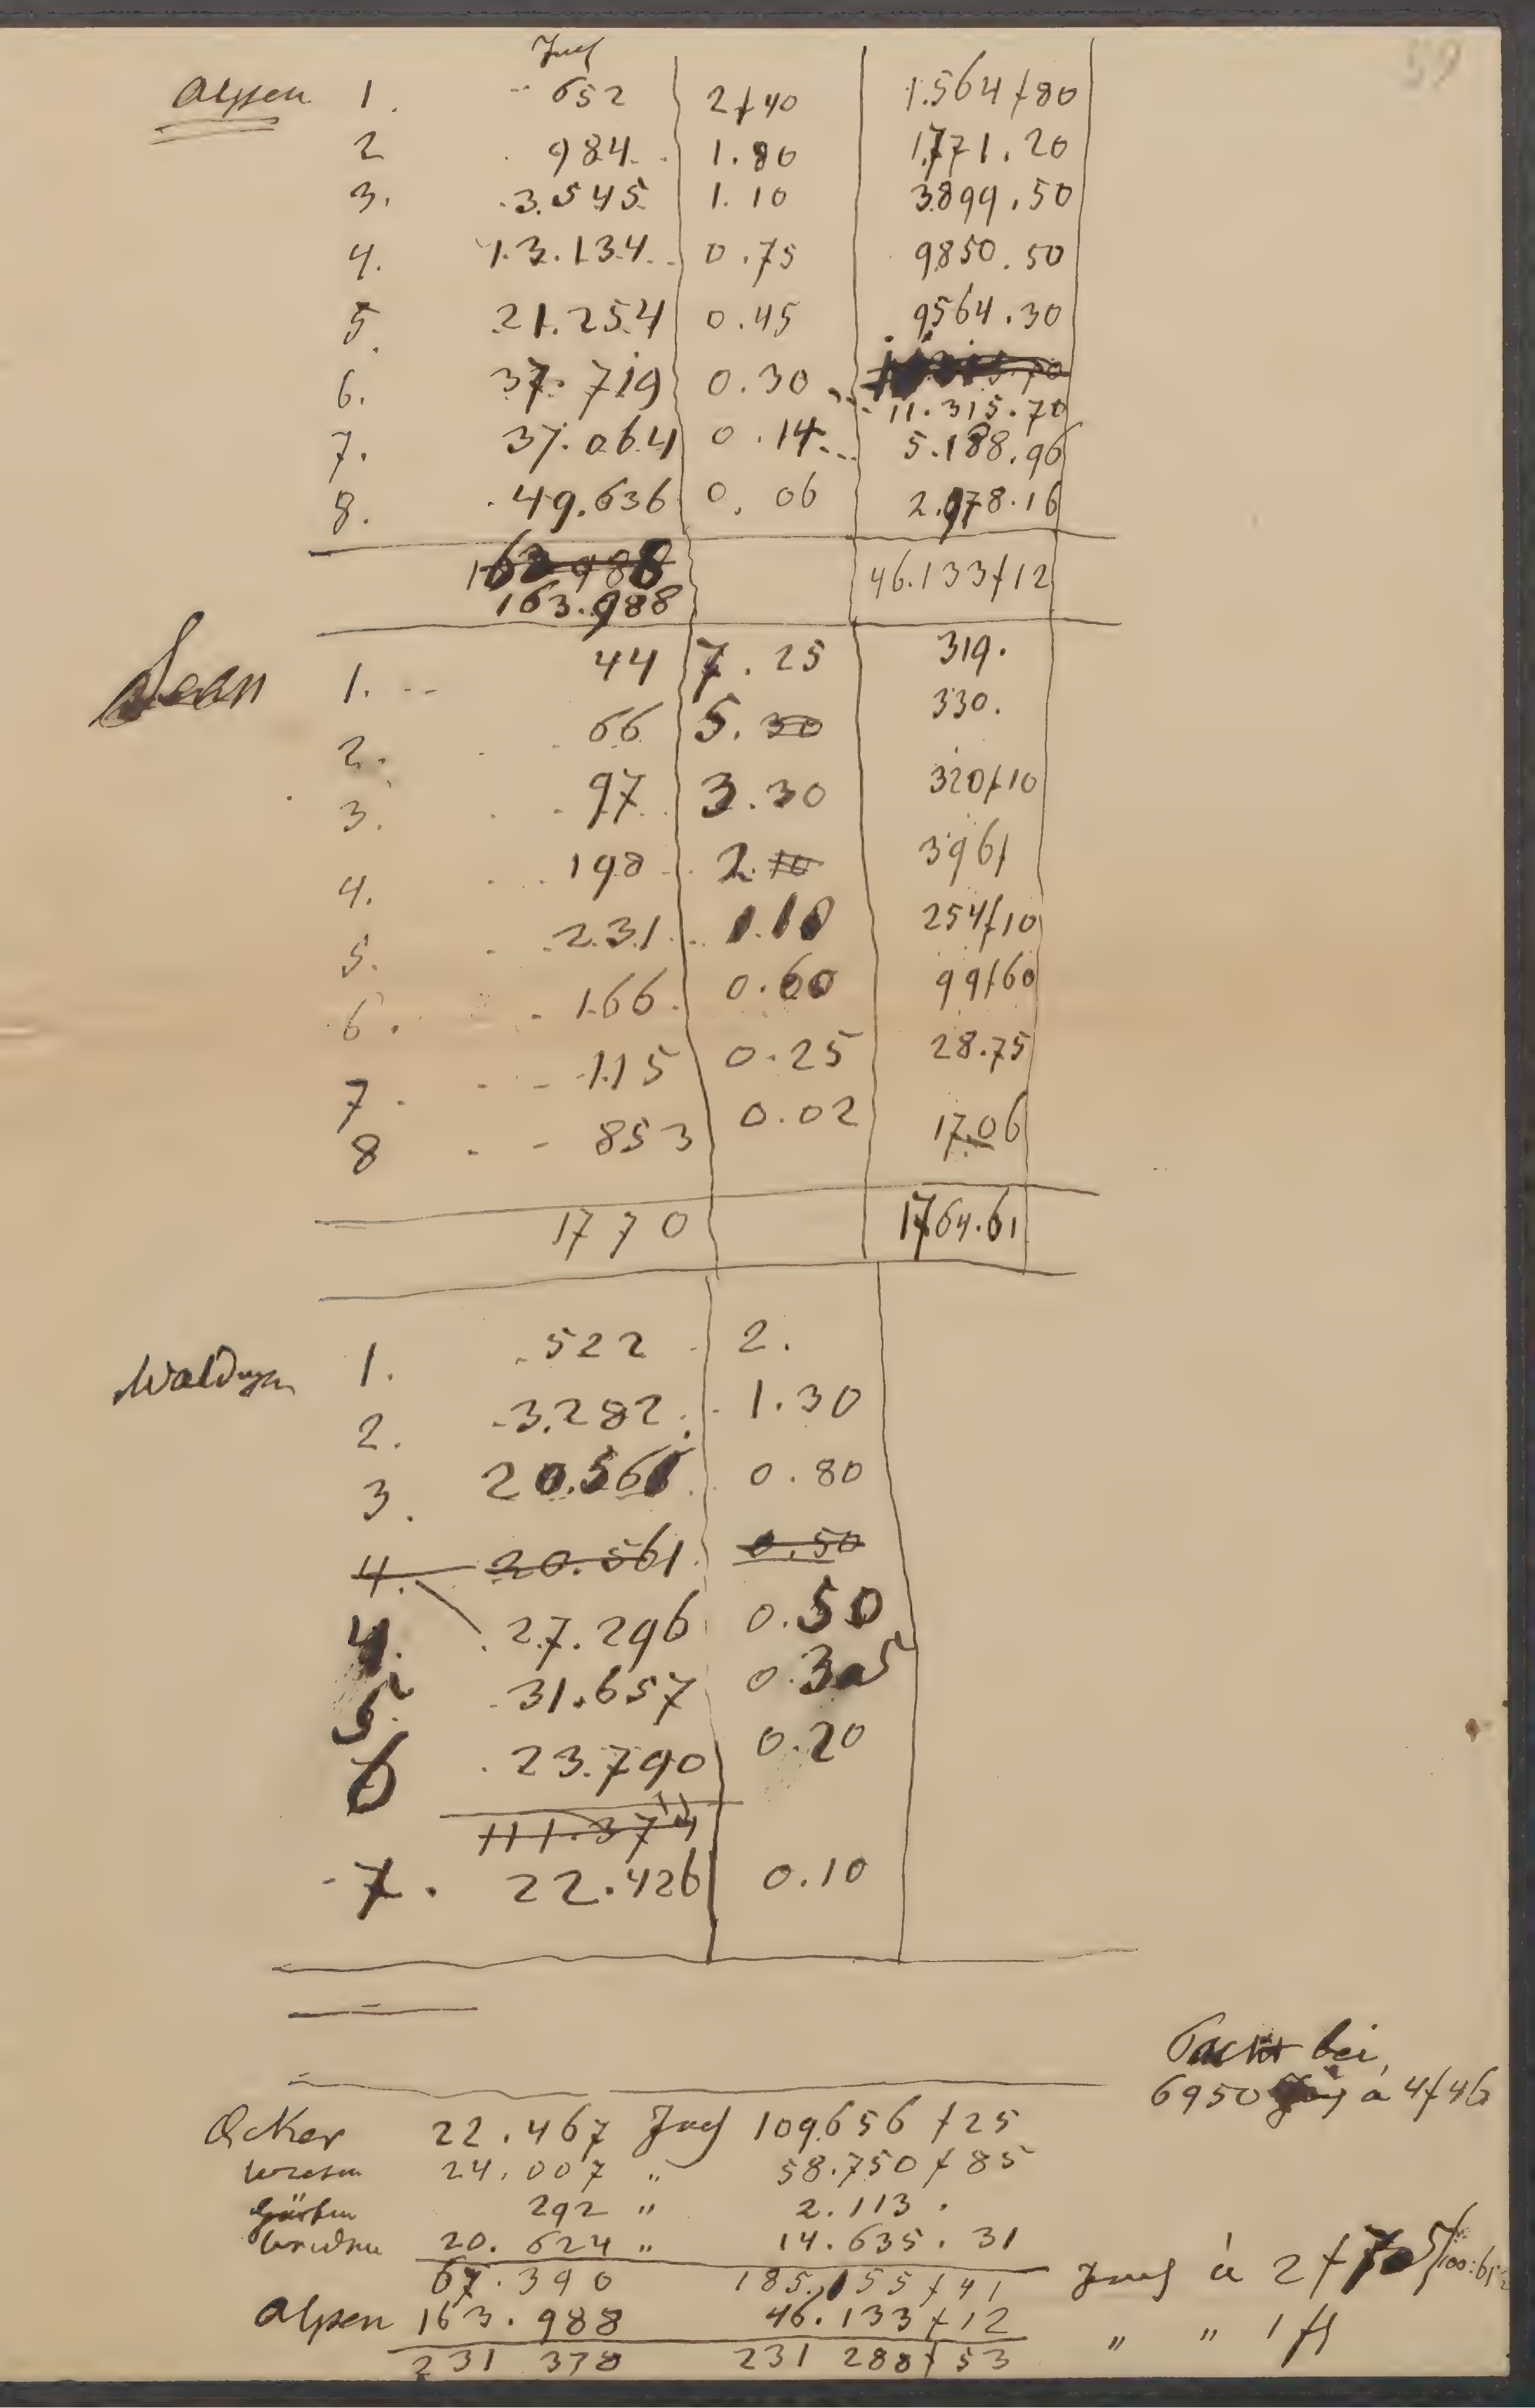 59
Joch
Alpen 1. 652 2f40 1.564f80
2 984 1.80 1.771.20
3. 3.545 1.10 3.899.50
4. 13.134 0.75 9850.50
5. 21.254 0.45 9564.30
6. 37.719 0.30
11.315.70
7. 37.064 0.14 5.188.96
8. 49.636 0.06 2.978.16
46.133f12
163.988
Seen 1. 44 7.25 319.
2. 66 5. 330.
3. 97 3.30 320f10
4. 198 2. 396f
5. 231 1.10 254f10
6. 166 0.60 99f60
7. 115 0.25 28.75
8 853 0.02 17.06
1770 1764.61
Waldungen 1. 522 2.
2. 3.282 1.30
3. 20.561 0.80
4. 20.561 0.50
4. 27.296 0.50
5. 31.657 0.35
6 23.790 0.20
7. 22.426 0.10
bei
6950 Joch à 4f46
Acker 22.467 Joch 109.656f25
Wiesen 24.007 " 58.750f85
Gärten 292 " 2.113.
Weiden 20.624 " 14.635.31
67.390 185.155f41 Joch à 2f
Alpen 163.988 46.133f12 " " 1 fl
231 378 231 288f53